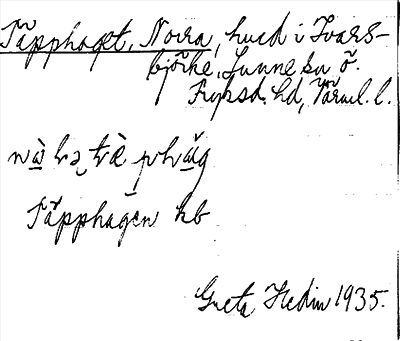 Täpphaget, Norra, hucd i Ivars-
björke, Sunne sn ö.
Fryksd. hd, Värml. l.
Täpphagen hb
Greta Hedin 1935.